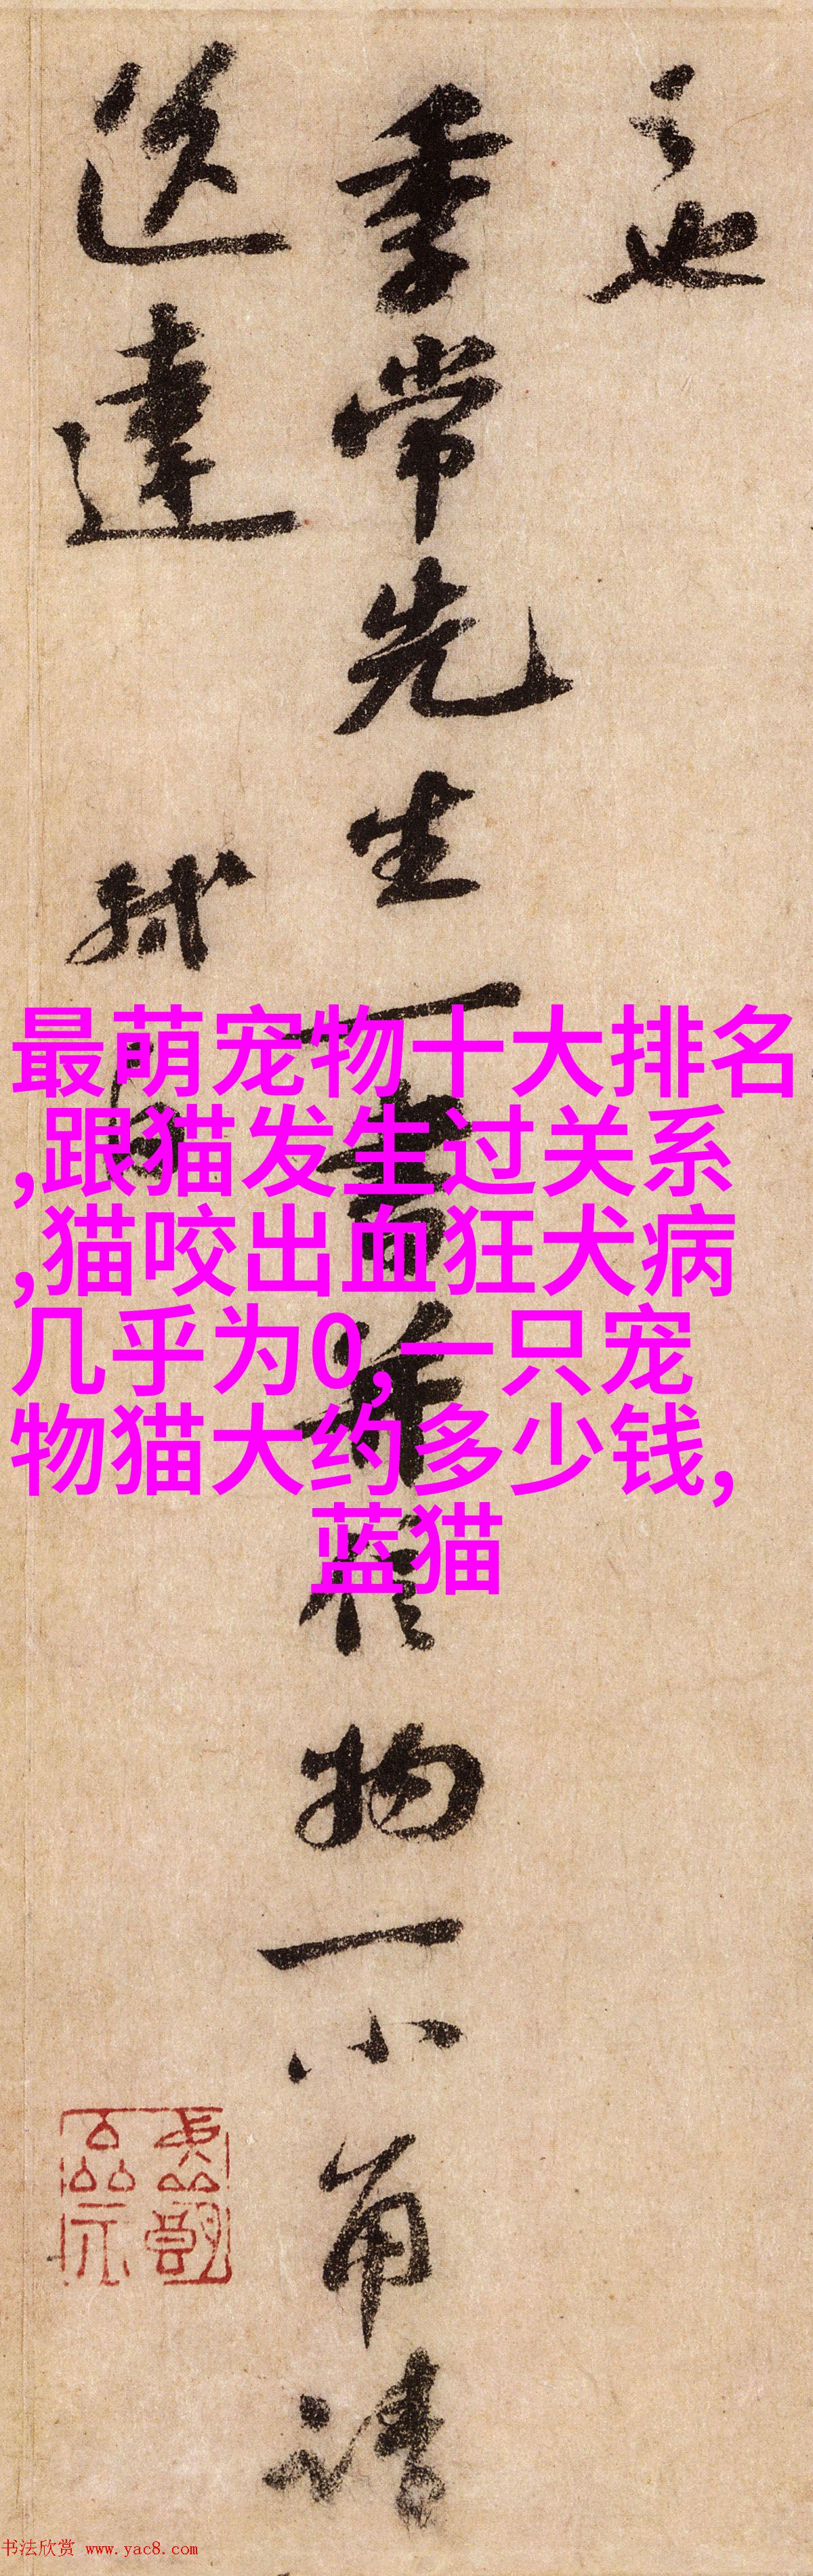 之也
季常先生一書并信物一小角請
送達 軾白
最萌宠物十大排名
,跟猫发生过关系
,猫咬出血狂犬病
几乎为0,一只宠
物猫大约多少钱,
蓝猫
书法欣赏 www.yac8.com